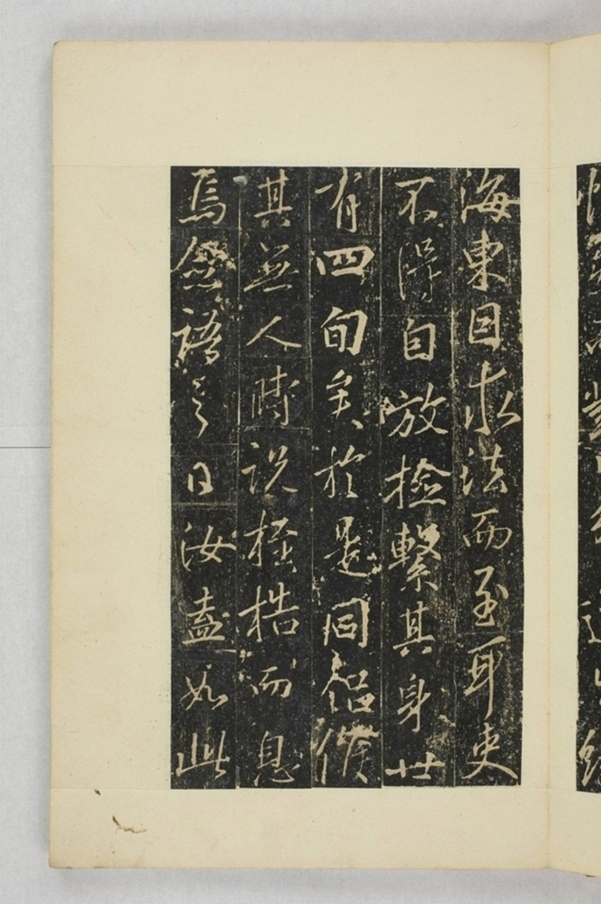 海東因求法而至耳吏
不得自放檢繫其身
有四旬矣於是同侶候
其無人時說桎梏而息
焉僉語之曰汝盍如此